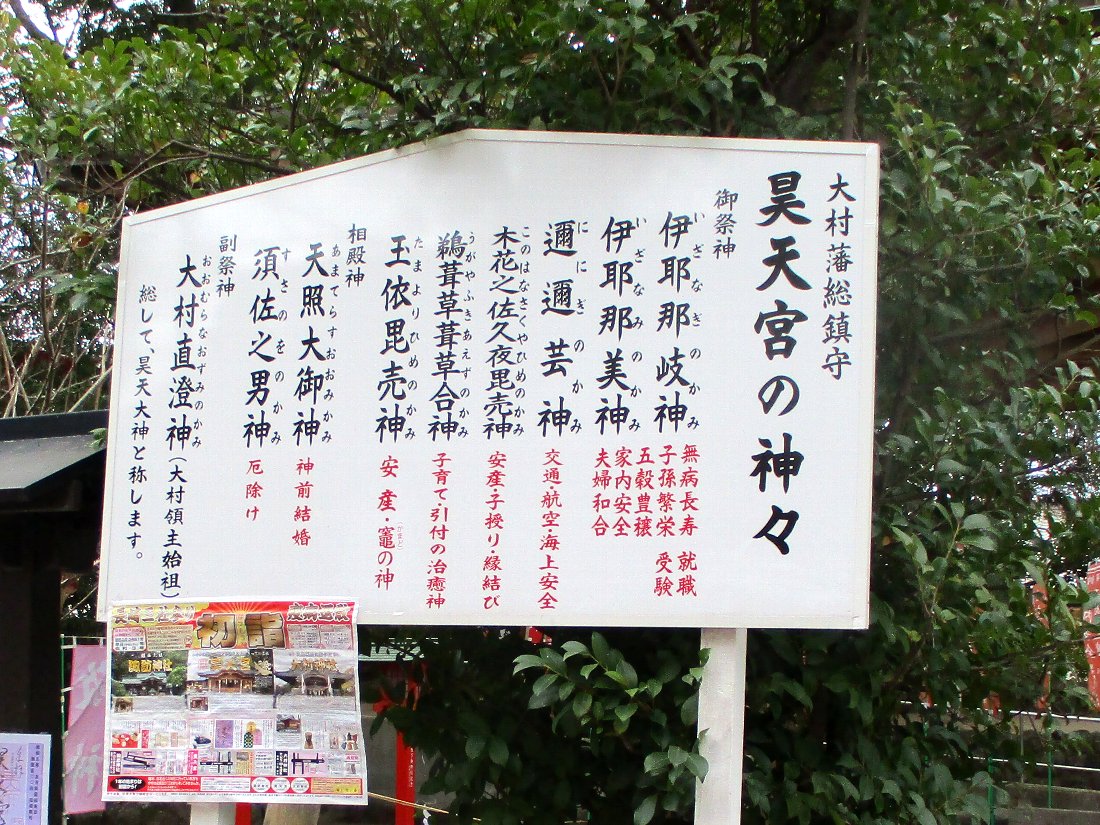 大村藩総鎮守
昊天宮の神々
御祭神
伊耶那岐神
いざなぎのかみ
無病長寿 就職
子孫繁栄 受験
五穀豊穣
伊耶那美神
いざなみのかみ
家内安全
夫婦和合
邇邇芸神
ににぎのかみ
交通・航空・海上安全
木花之佐久夜毘売神
このはなさくやひめのかみ
安産・子授り・縁結び
鵜葺草葺草合神
うがやふきあえずのかみ
子育て・引付の治癒神
玉依毘売神
たまよりひめのかみ
安産・竈の神
(かまど)
相殿神
天照大御神
あまてらすおおみかみ
神前結婚
須佐之男神
すさのをのかみ
厄除け
副祭神
大村直澄神(大村領主始祖)
おおむらなおずみのかみ
総して、昊天大神と称します。
初詣